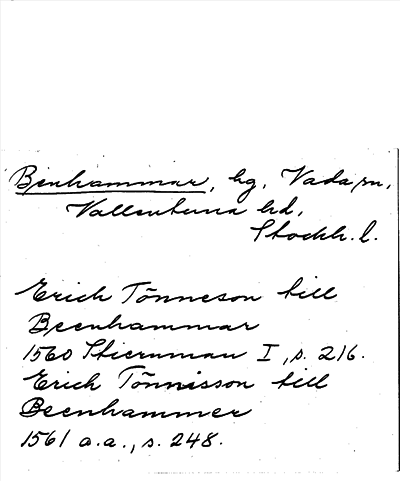 Benhammar, hg, Vada sn,
Vallentuna hd,
Stockh. l.
Erich Tönneson till
Beenhammar
1560 Stiernman I, s. 216.
Erich Tönnisson till
Beenhammer
1561 a.a., s. 248.